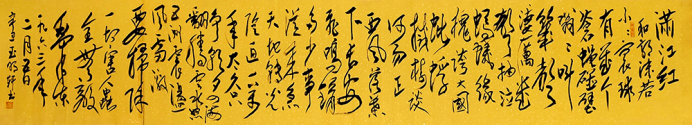 滿江红
和郭沫若
小小寰球
有幾个
苍蝇碰壁
嗡嗡叫
几声
凄厉几
声抽泣
蚂蚁缘
槐誇大国
蚍蜉
撼樹谈
何易正
西风落葉
下长安
飞鸣镝
多少事
从来急
天地转光
阴迫一万
年太久只
争朝夕四海
翻腾云水怒
五洲震荡
风雷激
要扫除
一切害人虫
全无敌
毛泽东
一九六三年